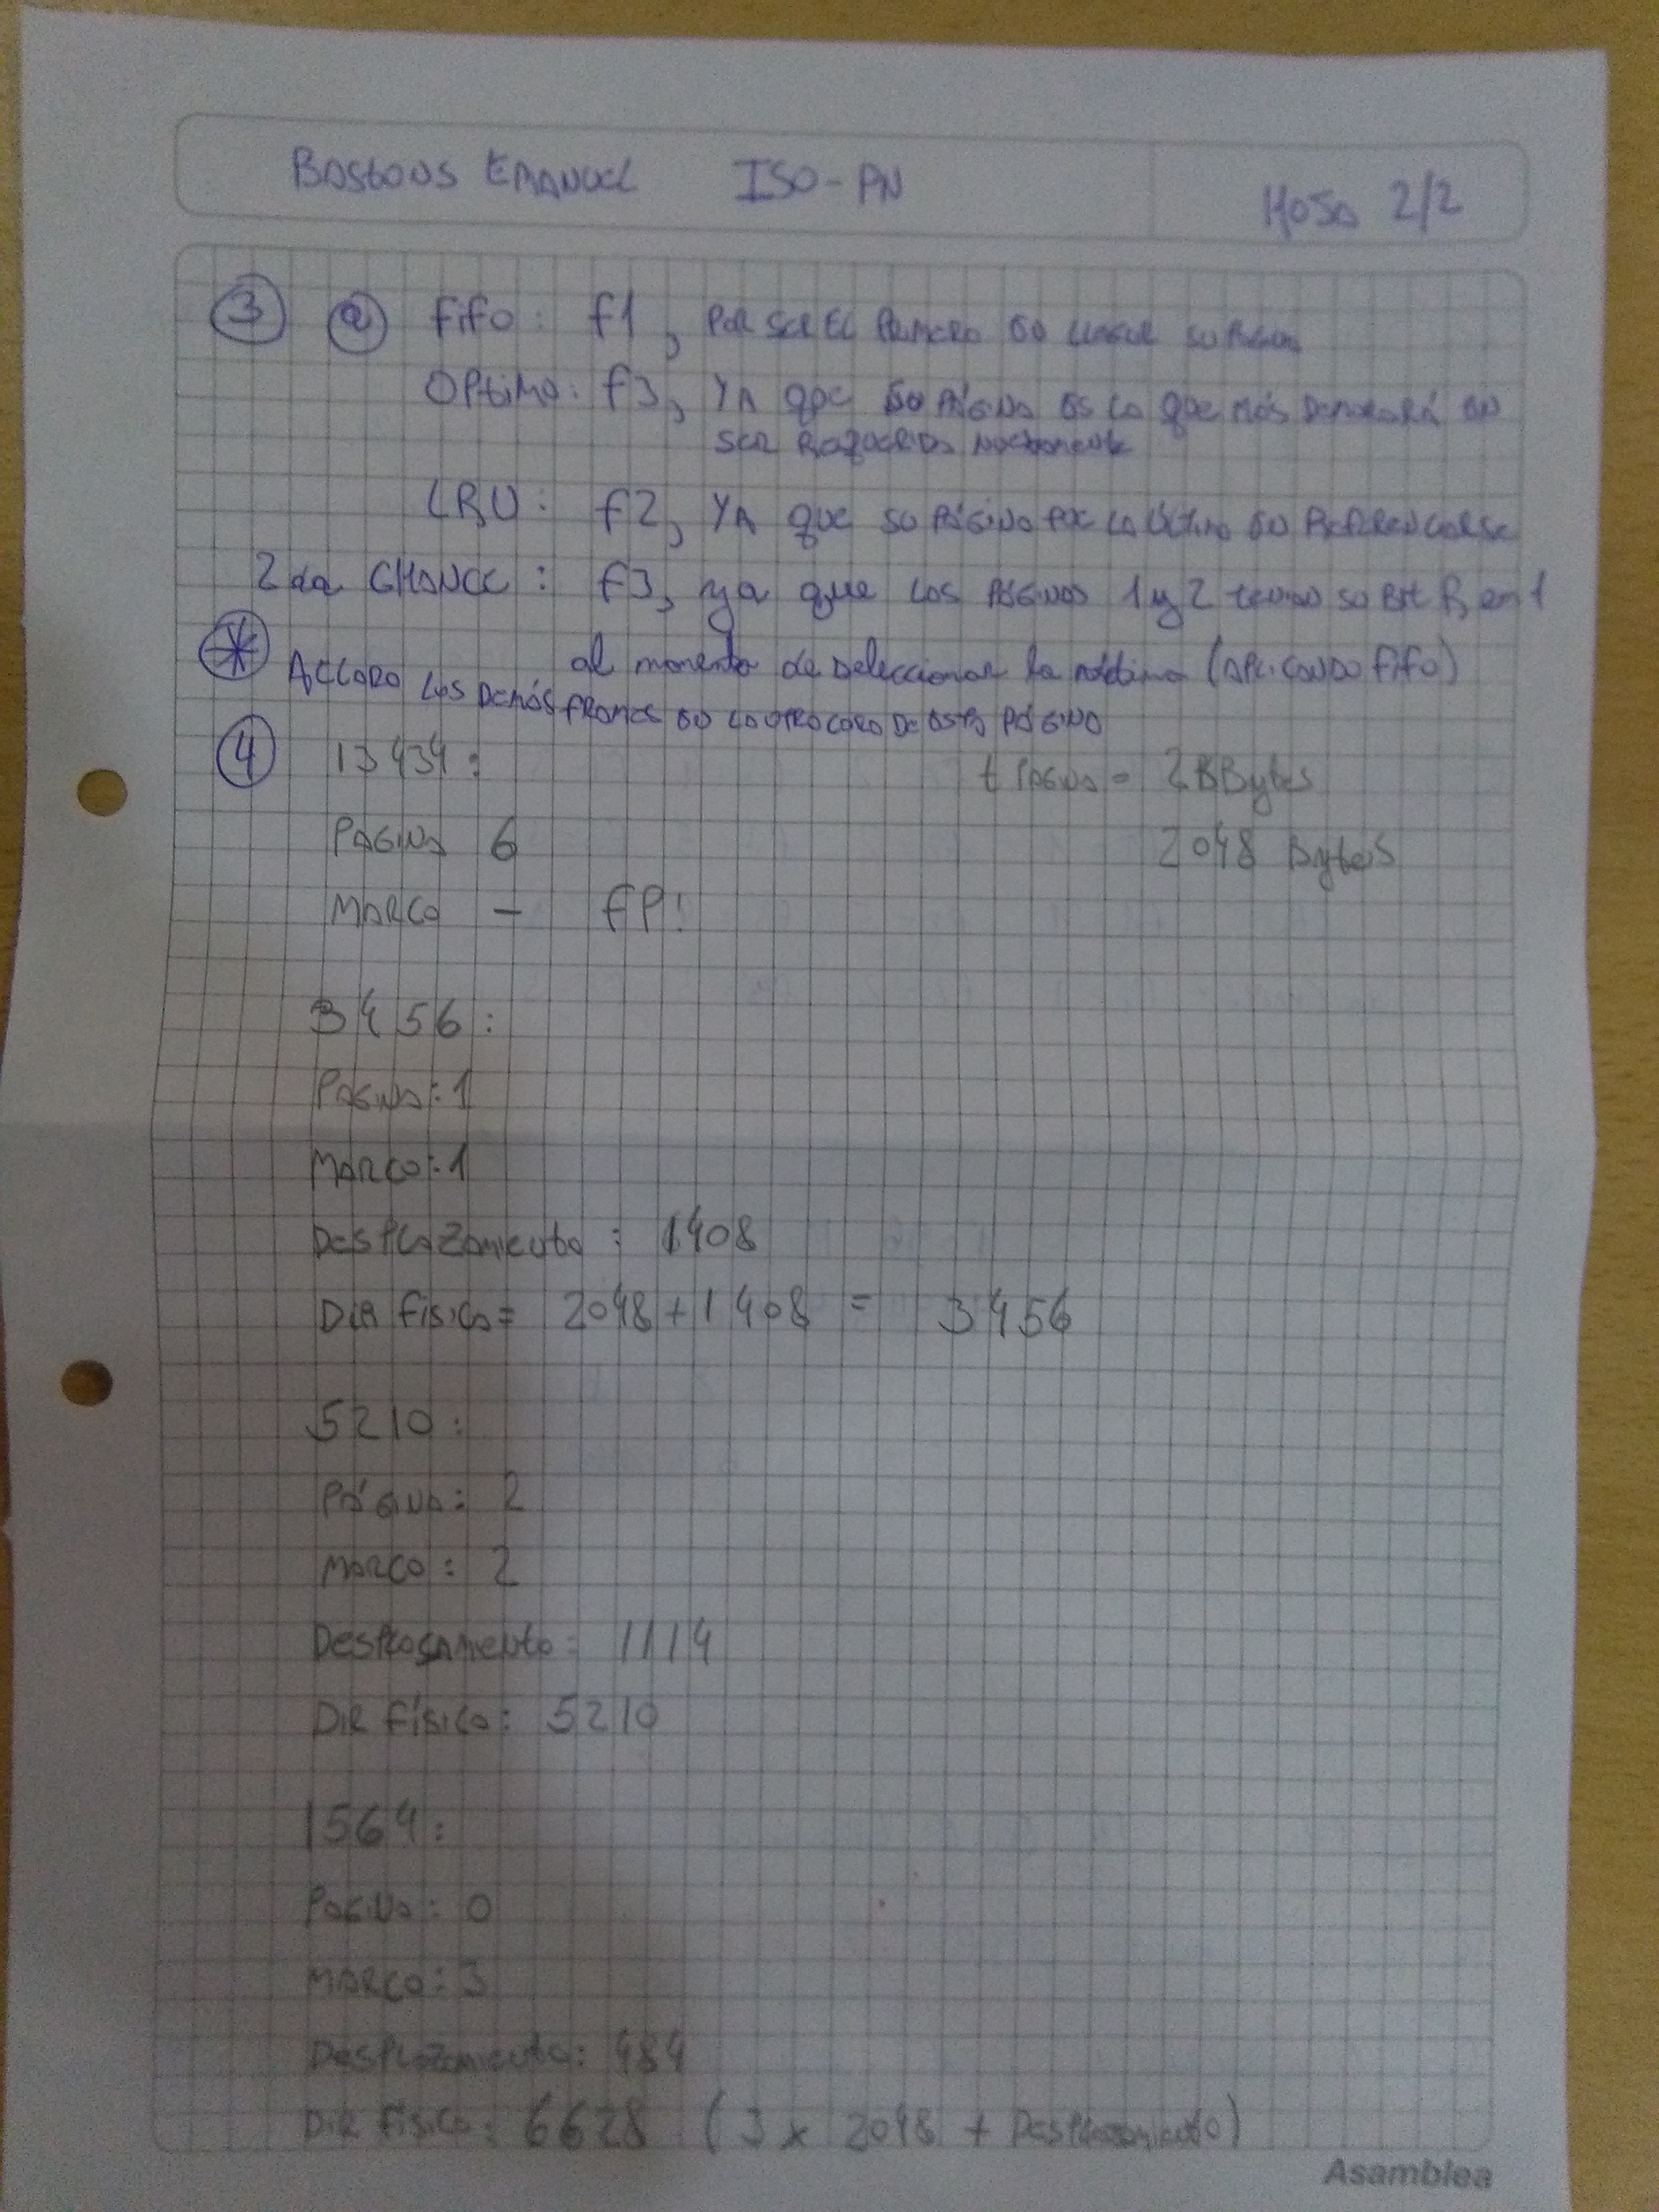 BASTONS EMANUEL ISO-PN HOJA 2/2
3 a FIFO: f1, POR SER EL PRIMERO EN LLEGAR SU PÁGINA
OPTIMO: f3, YA QUE SU PÁGINA ES LA QUE MÁS DEMORARÁ EN
SER REQUERIDA NUEVAMENTE
LRU: f2, YA QUE SU PÁGINA FUE LA ÚLTIMA EN REFERENCIARSE
2da CHANCE: f3, ya que LAS PÁGINAS 1 y 2 tenían su Bit R en 1
al momento de seleccionar la víctima (APLICANDO FIFO)
* ACLARO LOS DEMÁS FRAMES EN LA OTRA CARA DE ESTA PÁGINA
4 13434: t PÁGINA = 2KBytes
PÁGINA 6 2048 Bytes
MARCO — FP!
3456:
PAGINA: 1
MARCO: 1
DESPLAZAMIENTO: 1408
DIR FÍSICA = 2048 + 1408 = 3456
5210:
PÁGINA: 2
MARCO: 2
DESPLAZAMIENTO = 1114
DIR FÍSICA: 5210
1564:
PAGINA: 0
MARCO: 3
DESPLAZAMIENTO: 484
DIR FÍSICA: 6628 (3 x 2048 + DESPLAZAMIENTO)
Asamblea